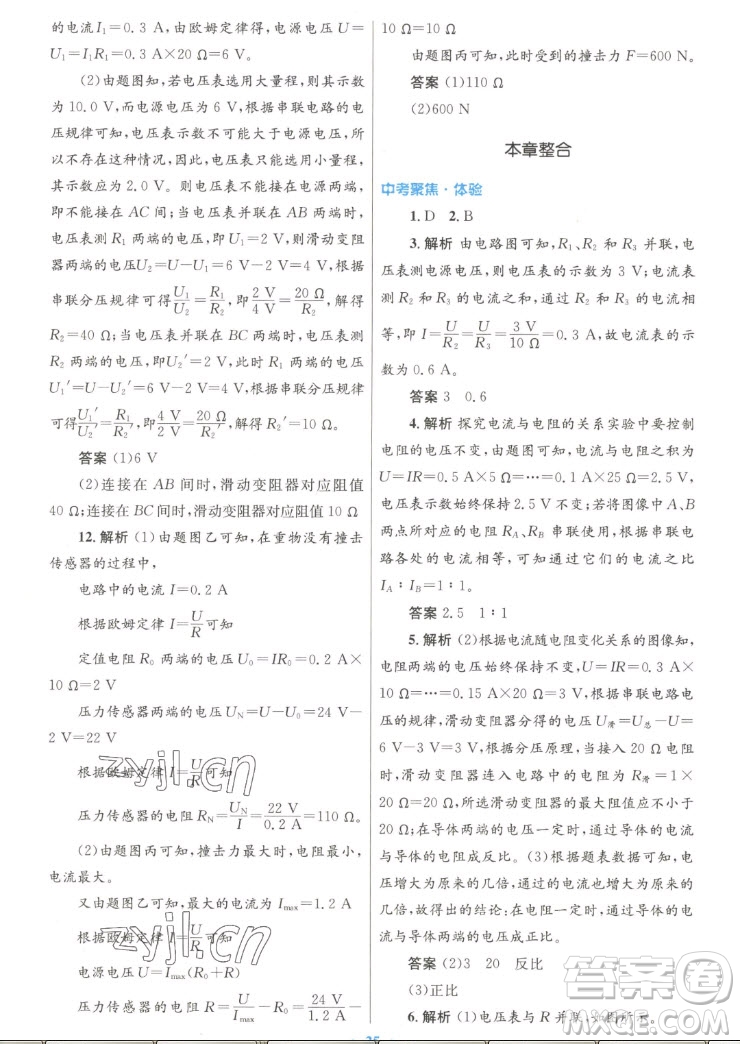 的电流 I₁=0.3 A,由欧姆定律得:U=
U₁=I₁R₁=0.3 A×20 Ω=6 V。
(2)由题图知,若电压表选用大量程,其示数
为 10.0 V,而电源电压为 6 V,根据串联电路的电
压规律可知,电压表示数不可能大于电源电压,所
以不存在这种情况,因此电压表选用小量程,其示
数为 2.0 V。则电压表不可能接在电源两端,可能
接在 AC 间;当电压表并联在 AC 两端时,此时
电压表测 R₁ 两端的电压 U₁=2 V,则滑动变阻
器两端的电压 U₂=U-U₁=6 V-2 V=4 V,根据
串联分压规律可得U₁/U₂=R₁/R₂,即2 V/4 V=20 Ω/R₂,解得
R₂=40 Ω;当电压表并联在 BC 两端时,电压表测
R₂ 两端的电压即 U₂′=2 V,此时 R₁ 两端的电压
U₁′=U-U₂′=6 V-2 V=4 V,根据串联分压规律
可得U₁′/U₂′=R₁/R₂′,即4 V/2 V=20 Ω/R₂′,解得 R₂′=10 Ω。
答案 (1)6 V
(2)连接在 AB 间时,滑动变阻器对应阻值
40 Ω;连接在 BC 间时,滑动变阻器对应阻值 10 Ω
12.解析 (1)由题图乙可知,在重物没有撞击
传感器的过程中,
电路中的电流 I=0.2 A
根据欧姆定律 I=U/R可知
定值电阻 R₀ 两端的电压 U₀=IR₀=0.2 A×
10 Ω=2 V
压力传感器两端的电压 U_N=U-U₀=24 V-
2 V=22 V
根据欧姆定律 I=U/R可知
压力传感器的电阻 R_N=U_N/I=22 V/0.2 A=110 Ω。
(2)由题图丙可知,撞击力最大时,电阻最小,
电流最大。
又由题图乙可知,最大的电流为 I_max=1.2 A
根据欧姆定律 I=U/R可知
电源电压 U=I_max(R₀+R)
压力传感器的电阻 R=U/I_max-R₀=24 V/1.2 A-
10 Ω=10 Ω
由题图丙可知,此时受到的撞击力 F=600 N。
答案 (1)110 Ω
(2)600 N
本章整合
中考聚焦·体验
1. D 2. B
3.解析 由电路图可知,R₁、R₂ 和 R₃ 并联,电
压表测电源电压,则电压表的示数为 3 V;电流表
测 R₂ 和 R₃ 的电流之和,通过 R₂ 和 R₃ 的电流相
等,即 I=U/R₂=U/R₃=3 V/10 Ω=0.3 A,故电流表的示
数为 0.6 A。
答案 3 0.6
4.解析 探究电流与电阻的关系实验中要控制
电阻的电压不变,由题图可知,电流与电阻之积为
U=IR=0.5 A×5 Ω=…=0.1 A×25 Ω=2.5 V,
电压表示数始终保持 2.5 V 不变;若将图像中 A、B
两点所对应的电阻 R_A、R_B 串联使用,根据串联电
路各处的电流相等,可知通过它们的电流之比
I_A∶I_B=1∶1。
答案 2.5 1∶1
5.解析 (2)根据电流随电阻变化关系的图像知,
电阻两端的电压始终保持不变,U=IR=0.3 A×
10 Ω=…=0.15 A×20 Ω=3 V,根据串联电路电
压的规律,滑动变阻器分得的电压 U滑=U总-U=
6 V-3 V=3 V,根据分压原理,当接入 20 Ω 电阻
时,滑动变阻器连入电路中的电阻为 R滑=1×
20 Ω=20 Ω,所选滑动变阻器的最大阻值应不小
于 20 Ω;在导体两端的电压一定时,通过导体的电流
与导体的电阻成反比。(3)根据题表数据可知,电
压增大为原来的几倍,通过的电流也增大为原来的
几倍,故得出的结论:在电阻一定时,通过导体的电
流与导体两端的电压成正比。
答案 (2)3 20 反比
(3)正比
6.解析 (1)电压表与 R 并联,如图所示。
25
zyjl.cn
zyjl.cn
答案圈
MXQE.COM